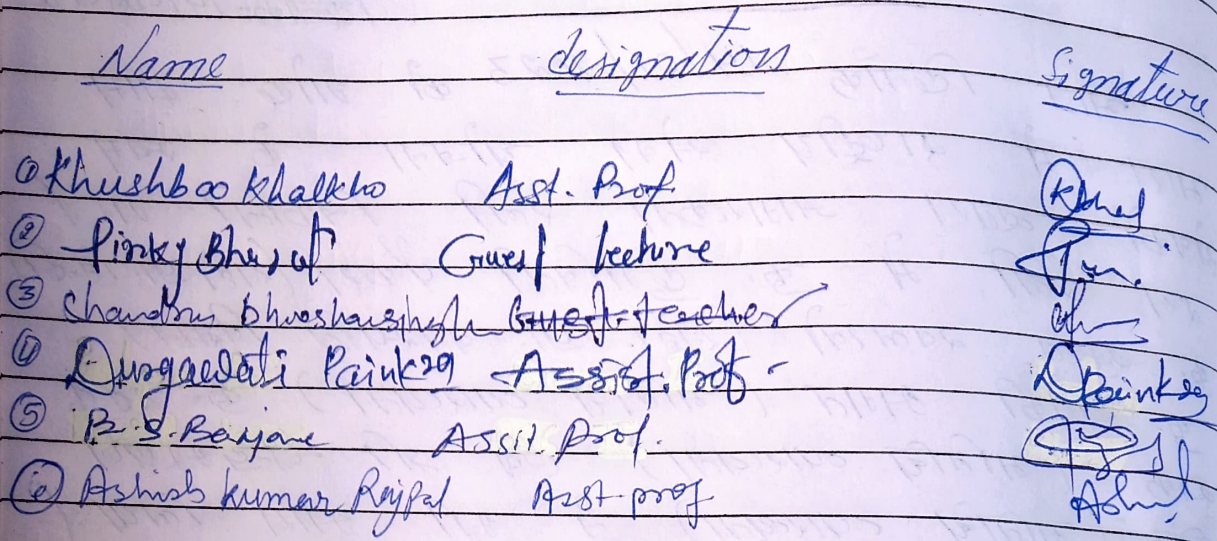 Name designation Signature
① Khushboo Khalkho Asst. Prof. Khal
② Pinky Bhagat Guest lecture
③ Chandra bhooshan singh Guest teacher
④ Durgawati Painkra Assist. Prof. DPainkra
⑤ B.S. Assit. Prof.
⑥ Ashish kumar Rajpal Asst. prof Ashish